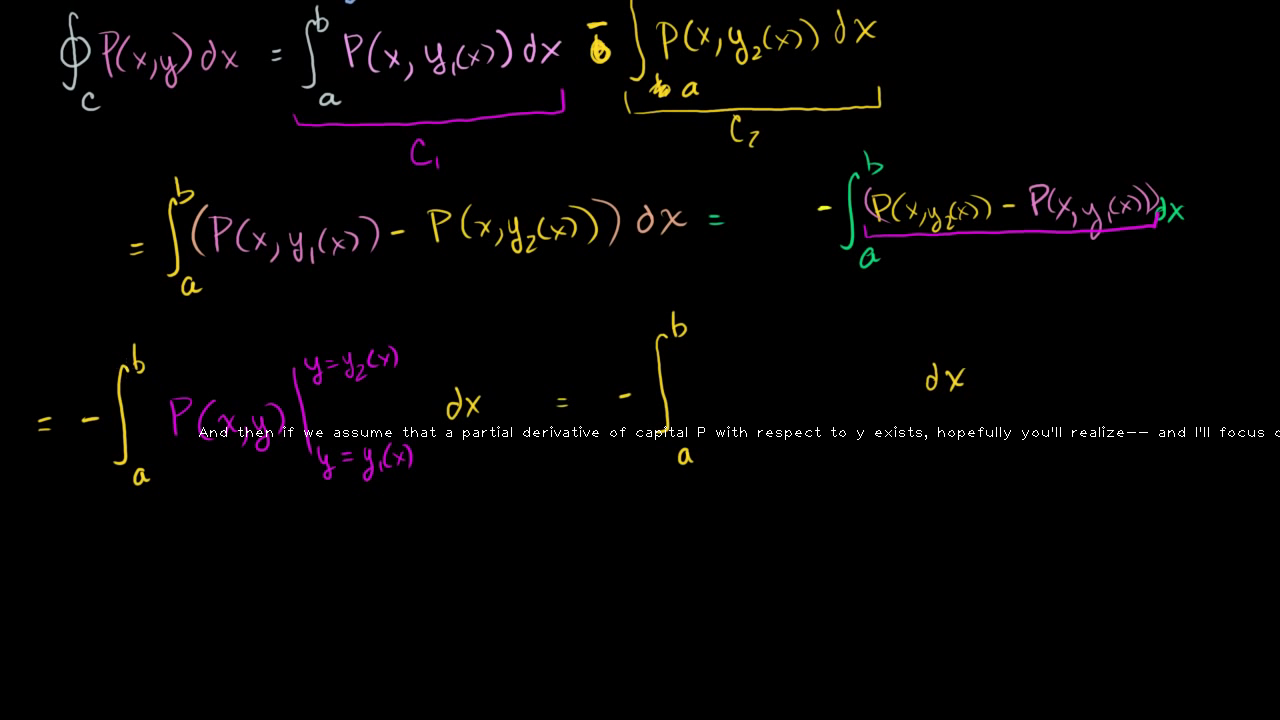 ∮_C P(x,y) dx = ∫_a^b P(x, y₁(x)) dx - ∫_a P(x, y₂(x)) dx
C₁ C₂
= ∫_a^b (P(x, y₁(x)) - P(x, y₂(x))) dx = - ∫_a^b (P(x, y₂(x)) - P(x, y₁(x))) dx
= - ∫_a^b P(x,y) |_{y = y₁(x)}^{y = y₂(x)} dx = - ∫_a^b dx
And then if we assume that a partial derivative of capital P with respect to y exists, hopefully you'll realize-- and I'll focus